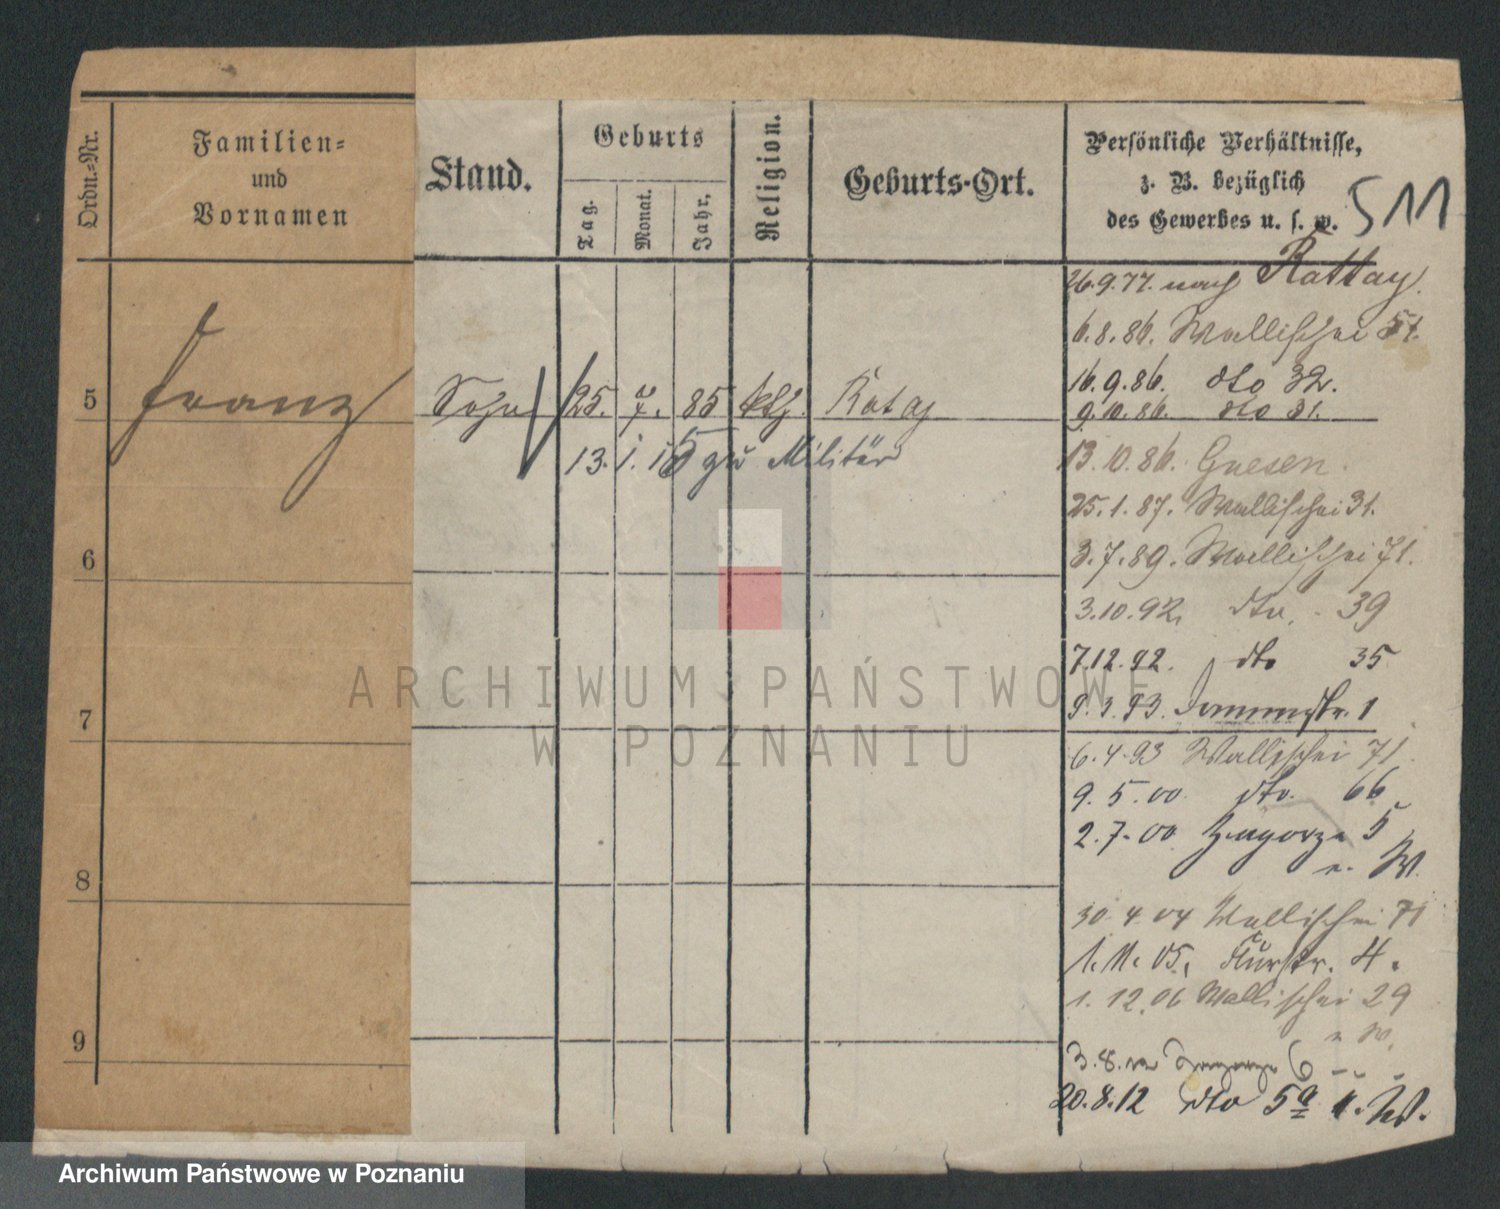 Ordn.=Nr.
Familien=
und
Vornamen
Stand.
Geburts
Tag.
Monat.
Jahr.
Religion.
Geburts-Ort.
Persönliche Verhältnisse,
z. B. bezüglich
des Gewerbes u. s. w.
511
26.9.77. nach Rattay.
6.8.86. Wallischei 51.
16.9.86. dto 32.
5 Franz Sohn 25. 7. 85 kth. Rataj
9.10.86. dto 31.
13.1.15 zu Militär
13.10.86. Gnesen.
25.1.87. Wallischei 31.
3.7.89. Wallischei 71.
6
3.10.92. dto. 39
7.12.92. dto 35
9.3.93. Dommstr. 1
7
6.4.93 Wallischei 71
9.5.00. dto. 66
2.7.00 Zagorze 5
n. W.
8
30.4.04 Wallischei 71
1.11.05. Flurstr. 4.
1.12.06 Wallischei 29
n W.
9
3.8. Zagorze 6
20.8.12 dto 5a n. W.
ARCHIWUM PAŃSTWOWE
W POZNANIU
Archiwum Państwowe w Poznaniu